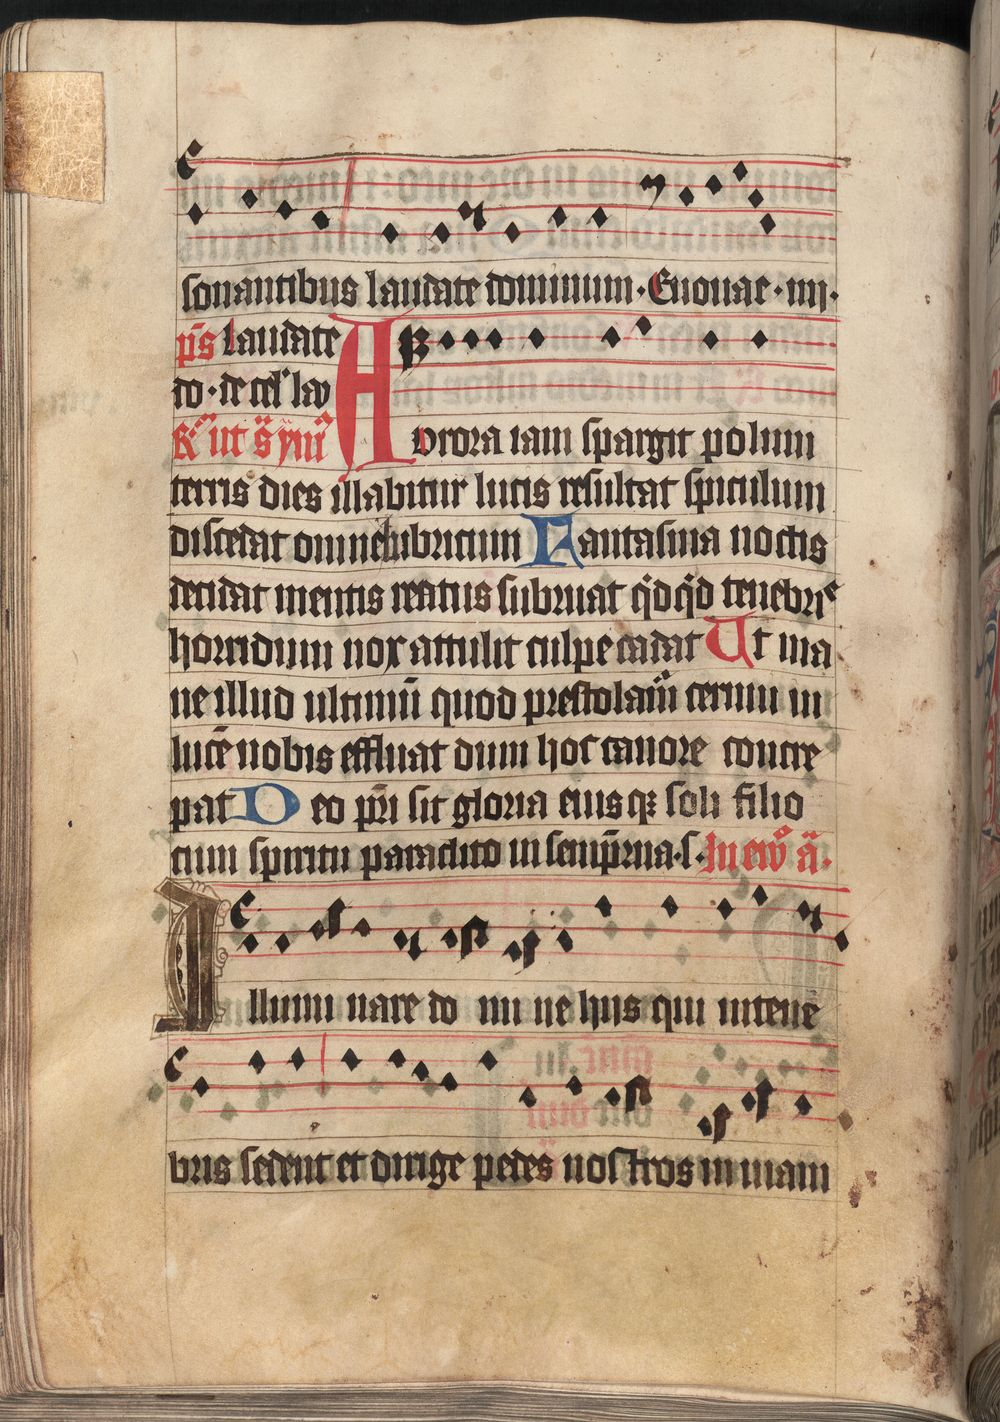 sonantibus laudate dominum · Euouae · mi·
p̄s laudate
do · de cel' lao
R' ut s̄ ym̄
Aurora iam spargit polum
terris dies illabitur lucis resultat spiculum
discedat omne lubricum Fantasma noctis
decidat mentis reatus subruat qdqd tenebris
horridum nox attulit culpe cadat Ut ma
ne illud ultimū quod prestolam̄ cernui in
lucē nobis effluat dum hoc canore concre
pat Deo pri sit gloria eiusq; soli filio
cum spiritu paraclito in semp̄rna · s · In ew̄ ā ·
Illumi nare do mi ne hijs qui intene
bris sedent et dirige pedes nostros in uiam